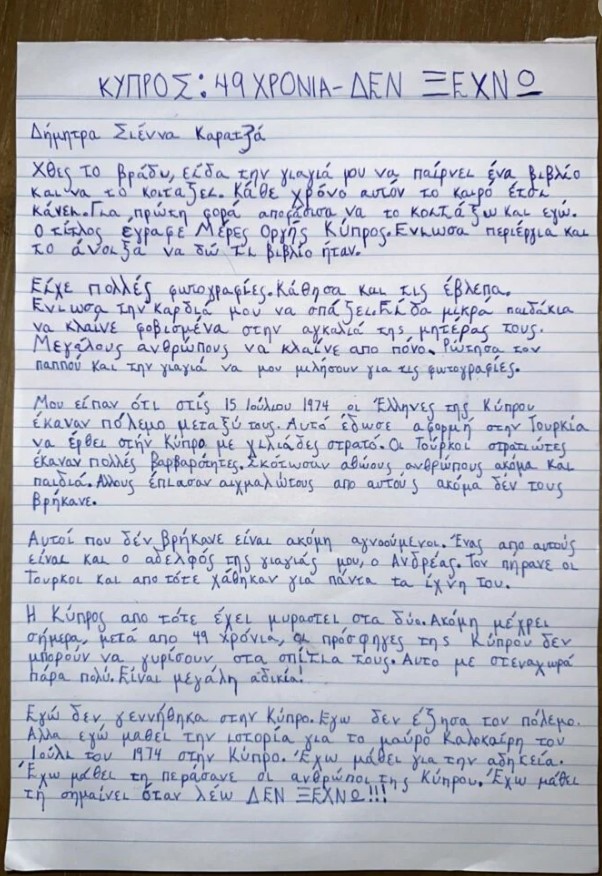 ΚΥΠΡΟΣ: 49 ΧΡΟΝΙΑ - ΔΕΝ ΞΕΧΝΩ
Δήμητρα Σιέννα Καρατζά
Χθες το βράδυ, είδα την γιαγιά μου να παίρνει ένα βιβλίο
και να το κοιτάξει. Κάθε χρόνο αυτόν το καιρό έτσι
κάνει. Για πρώτη φορά αποφάσισα να το κοιτάξω και εγώ.
Ο τίτλος έγραφε Μέρες Οργής Κύπρος. Ένιωσα περιέργια και
το άνοιξά να δώ τι βιβλίο ήταν.
Είχε πολλές φωτογραφίες. Κάθησα και τις έβλεπα.
Ένιωσα την καρδιά μου να σπάζει. Είδα μικρά παιδάκια
να κλαίνε φοβισμένα στην αγκαλιά της μητέρας τους.
Μεγάλους ανθρώπους να κλαίνε απο πόνο. Ρώτησα τον
παππού και την γιαγιά να μου μιλήσουν για τις φωτογραφίες.
Μου είπαν ότι στίς 15 Ιούλιου 1974 οι Έλληνες της Κύπρου
έκαναν πόλεμο μεταξύ τους. Αυτό έδωσε αφορμή στην Τουρκία
να έρθει στήν Κύπρο με χιλιάδες στρατό. Οι Τούρκοι στρατιώτες
έκαναν πολλές βαρβαρότητες. Σκότωσαν αθώους ανθρώπους ακόμα και
παιδιά. Άλλους έπιασαν αιχμαλώτους απο αυτούς ακόμα δέν τους
βρήκανε.
Αυτοί που δέν βρήκανε είναι ακόμη αγνοούμενοι. Ένας απο αυτούς
είναι και ο αδελφός της γιαγιάς μου, ο Ανδρέας. Τον πήρανε οι
Τουρκοι και απο τότε χάθηκαν για πάντα τα ίχνη του.
Η Κύπρος απο τότε έχει μυραστει στα δύο. Ακόμη μέχρει
σήμερα, μετά απο 49 χρόνια, οι πρόσφηγες της Κύπρου δεν
μπορούν να γυρίσουν στα σπίτια τους. Αυτο με στεναχωρά
πάρα πολύ. Είναι μεγάλη αδικία!
Εγώ δεν γεννήθηκα στην Κύπρο. Εγω δεν έζησα τον πόλεμο.
Αλλα εγώ μαθει την ιστορία για το μαύρο Καλοκαίρη του
Ιούλι του 1974 στην Κύπρο. Έχω μάθει για την αδηκεία.
Έχω μάθει τη περάσανε οι ανθρώποι της Κύπρου. Έχω μάθει
τή σημαίνει όταν λέω ΔΕΝ ΞΕΧΝΩ!!!